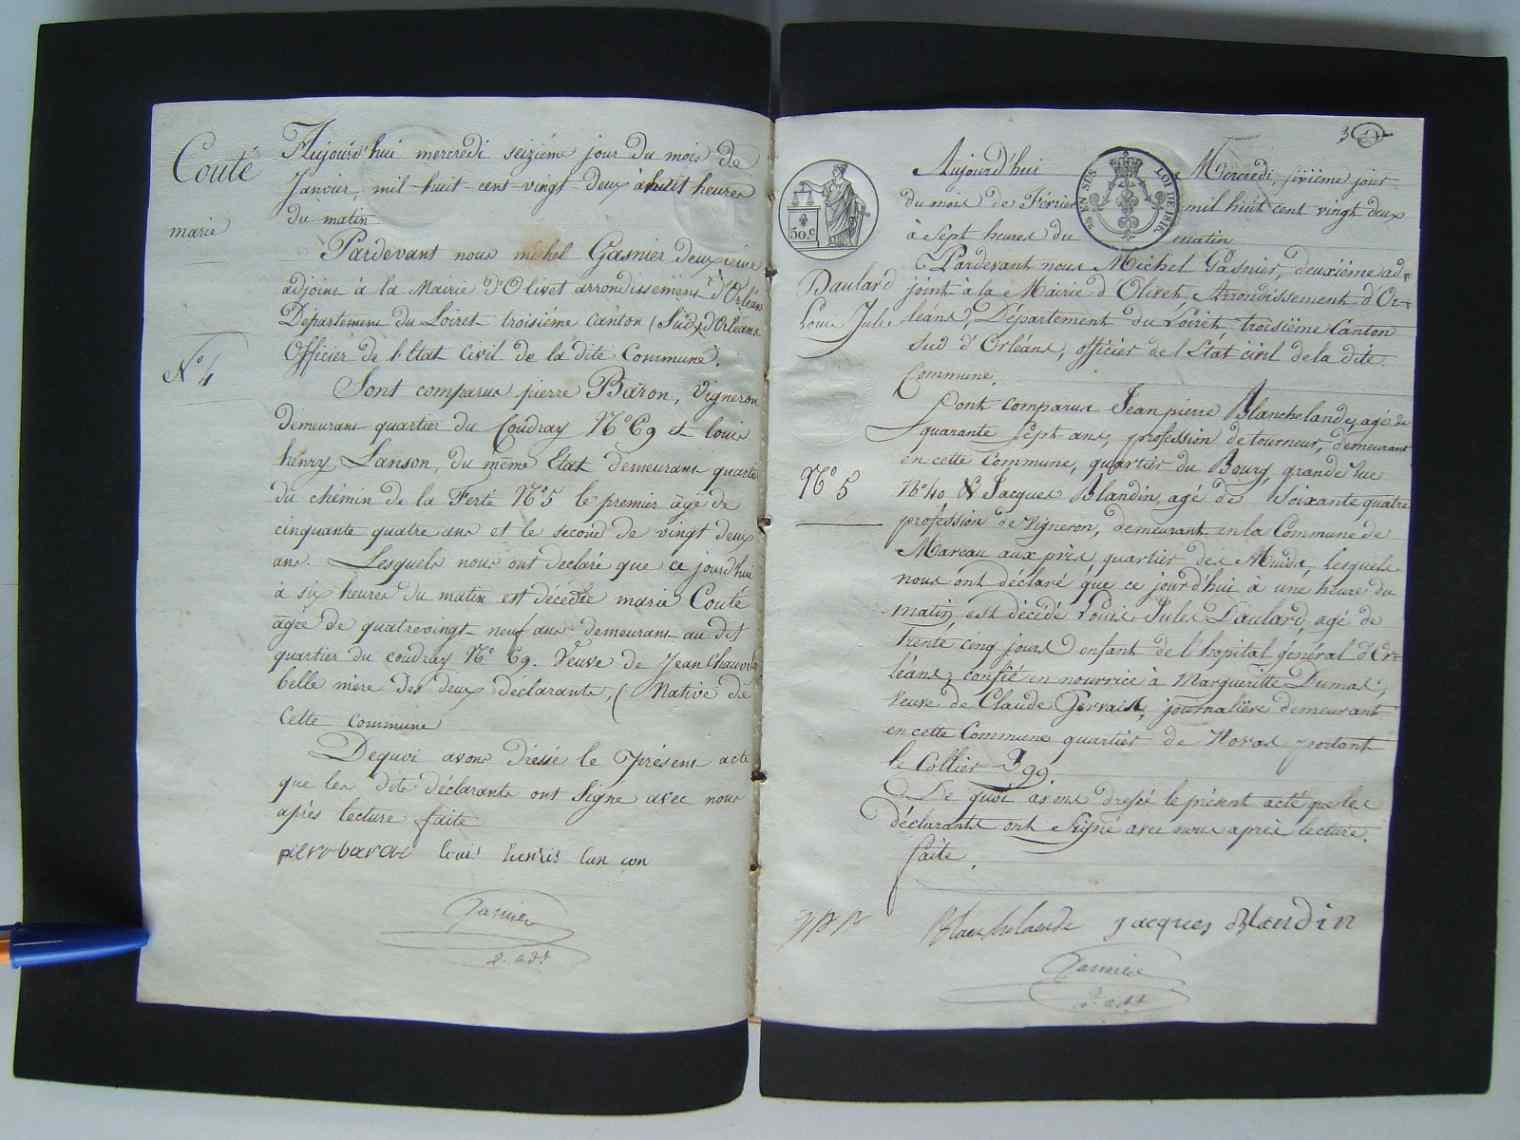 Couté
marie
N° 4
Aujourd'hui mercredi seizième jour du mois de
Janvier, mil-huit-cent-vingt deux à huit heures
du matin
Pardevant nous michel Gasnier deuxieme
adjoint à la Mairie d'Olivet arrondissement d'Orléans
Département du Loiret troisième Canton (Sud) d'Orléans
Officier de l'Etat Civil de la dite Commune.
Sont comparus pierre Baron, Vigneron
demeurant quartier du Coudray N° 69 et louis
henry Lanson, du même Etat demeurant quartier
du chémin de la Ferté N° 5 le premier âgé de
cinquante quatre ans et le second de vingt deux
ans. Lesquels nous ont declaré que ce jourd'hui
à six heures du matin est décédée marie Couté
âgée de quatrevingt-neuf ans demeurant au dit
quartier du coudray N° 69. Veuve de Jean Chauvin
belle mère des deux déclarants, (Native de
Cette commune
Dequoi avons dressé le présent acte
que les dits déclarants ont Signé avec nous
après lecture faite
pierr baron louis henris lan son
Gasnier
2. adt
3
EN SUS
LOI DE 1816
50.c
Daulard
Louis Jules
N° 5
Aujourd'hui Mercredi, sixième jour
du mois de Février mil huit cent vingt deux
à Sept heures du matin
Pardevant nous Michel Gasnier, deuxième ad=
joint à la Mairie d'Olivet, Arrondissement d'Or=
léans, Département du Loiret, troisième Canton
Sud d'Orléans, officier de l'Etat civil de la dite
Commune.
Sont comparus Jean pierre Blanchelande, agé de
quarante Sept ans, profession de tourneur, demeurant
en cette Commune, quartier du Bourg, grande rue
N° 40 & Jacques Blandin, agé de Soixante quatre
profession de Vigneron, demeurant en la Commune de
Mareau aux prés quartier des Muids, lesquels
nous ont déclaré que ce jourd'hui à une heure du
matin, est décédé Louis Jules Daulard, agé de
trente cinq jours enfant de l'hopital général d'Or=
léans, confié en nourrice à Margueritte Dumas,
Veuve de Claude Gervais, journalière demeurant
en cette Commune quartier de Noras portant
le Collier 399.
De quoi avons dressé le présent acte que les
déclarants ont Signé avec nous après lecture
faite.
Blanchelande Jacques Blandin
Gasnier
2. adt